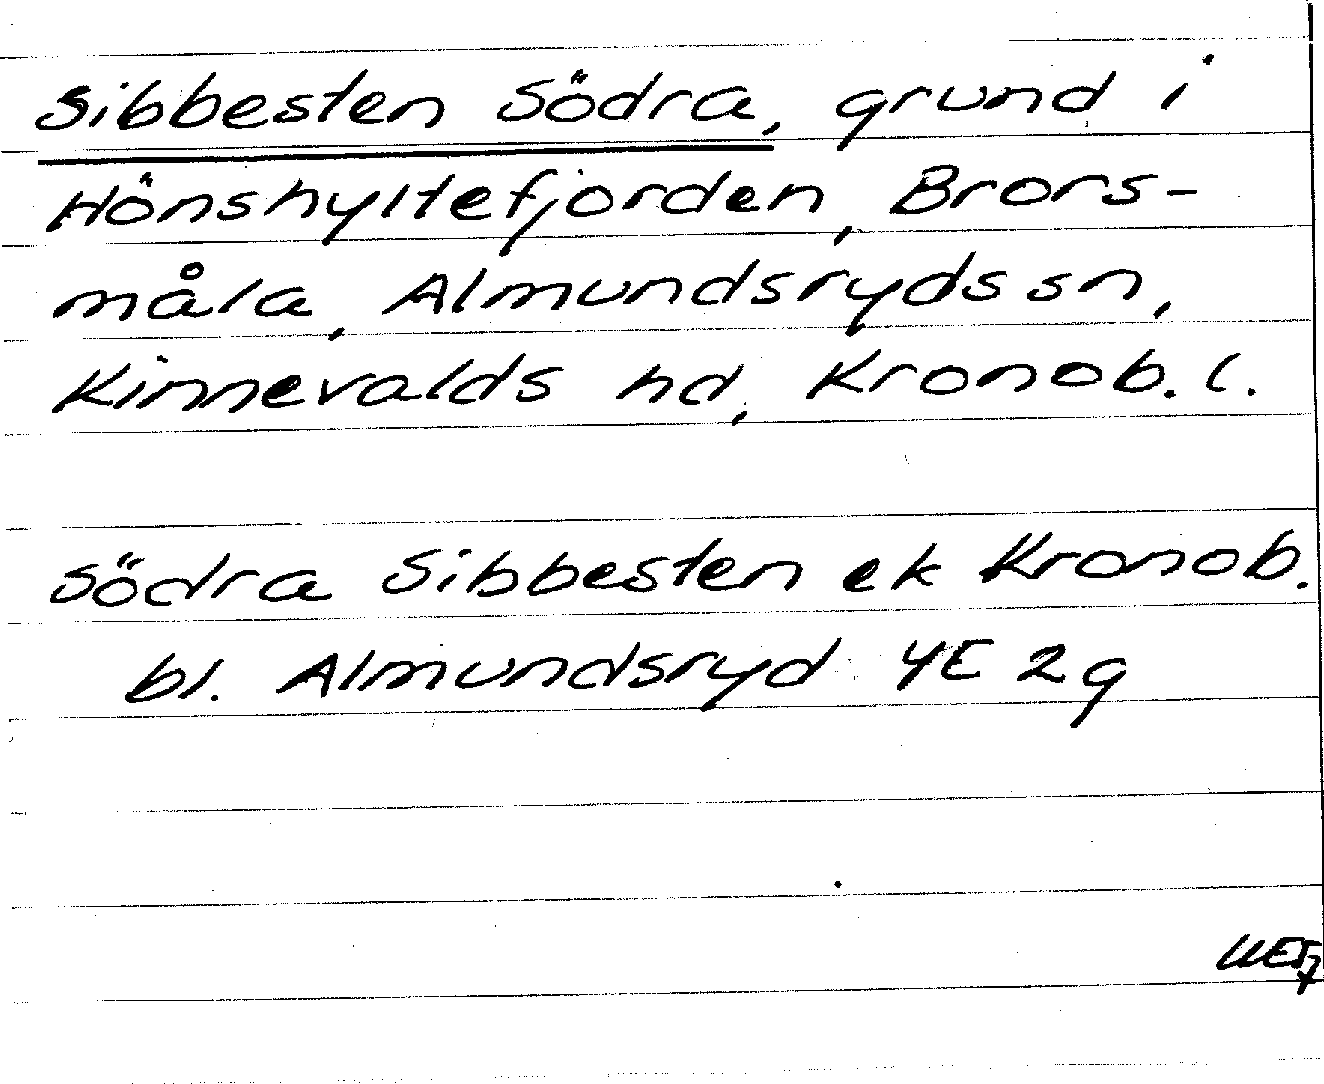 Sibbesten Södra, grund i
Hönshyltefjorden, Brors-
måla, Almundsryds sn,
Kinnevalds hd, Kronob. l.
Södra Sibbesten ek Kronob.
bl. Almundsryd 4E 2g